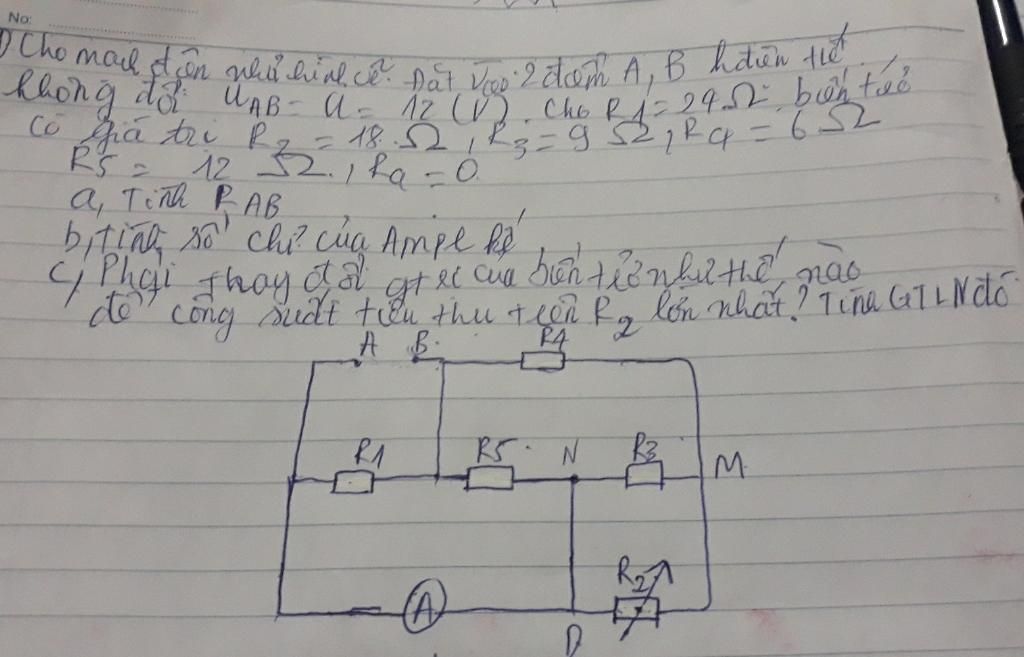 No:
1) Cho mạch điện như hình vẽ. Đặt vào 2 điểm A, B hđiện thế
không đổi UAB = U = 12 (V). Cho R1 = 24Ω. biến trở
có giá trị R2 = 18 Ω, R3 = 9 Ω, R4 = 6 Ω
R5 = 12 Ω., Ra = 0
a, Tính RAB
b, Tính số chỉ của Ampe kế
c, Phải thay đổi gtrị của biến trở như thế nào
để công suất tiêu thụ trên R2 lớn nhất? Tính GTLN đó
A B R4
R1 R5 N R3 M
R2
A
D